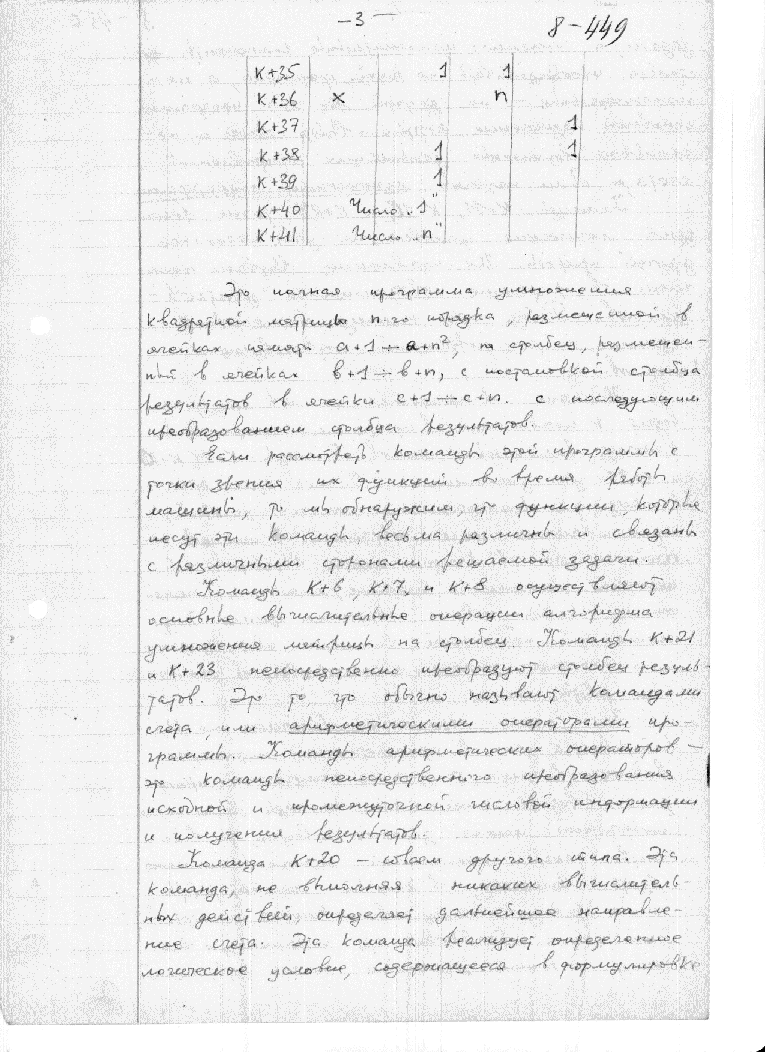 – 3 –
8-449
К+35 1 1
К+36 × n
К+37 1
К+38 1 1
К+39 1
К+40 Число „1"
К+41 Число „n"
Это полная программа умножения
квадратной матрицы n-го порядка, размещенной в
ячейках памяти a+1 ÷ a+n², на столбец, размещен-
ный в ячейках b+1 ÷ b+n, с постановкой столбца
результатов в ячейки c+1 ÷ c+n. с последующим
преобразованием столбца результатов.
Если рассмотреть команды этой программы с
точки зрения их функций во время работы
машины, то мы обнаружим, что функции, которые
несут эти команды, весьма различны и связаны
с различными сторонами решаемой задачи.
Команды К+6, К+7, и К+8 осуществляют
основные вычислительные операции алгорифма
умножения матрицы на столбец. Команды К+21
и К+23 непосредственно преобразуют столбец резуль-
татов. Это то, что обычно называют командами
счета, или арифметическими операторами про-
граммы. Команды арифметических операторов –
это команды непосредственного преобразования
исходной и промежуточной числовой информации
и получения результатов.
Команда К+20 – совсем другого типа. Эта
команда, не выполняя никаких вычислитель-
ных действий, определяет дальнейшее направле-
ние счета. Эта команда реализует определенное
логическое условие, содержащееся в формулировке